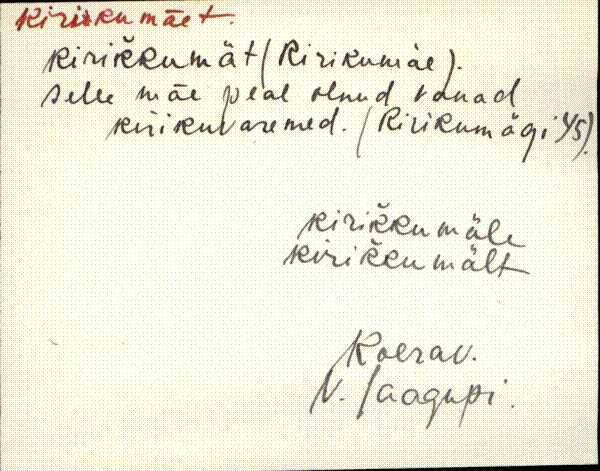 Kirikumäet.
kirikkumät (Kirikumäe).
Selle mäe peal olnud vanad
kirikuvaremed. (Kirikumägi 45).
kirikkumäle
kirikkumält
Koerav.
V. Jaagupi.